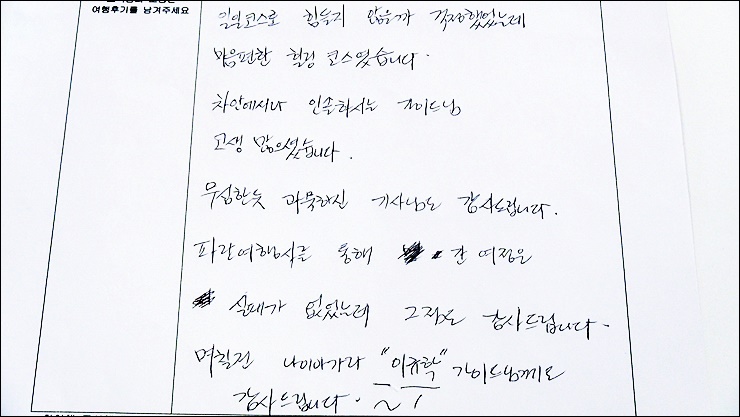 여행후기를 남겨주세요
일일코스로 힘들지 않을까 걱정했었는데
마음편한 힐링 코스였습니다.
차안에서나 인솔하시는 가이드님
고생 많으셨습니다.
무심한듯 과묵하신 기사님도 감사드립니다.
파란여행사를 통해 간 여정은
실패가 없었는데 그점도 감사드립니다.
며칠전 나이아가라 "이규학" 가이드님께도
감사드립니다.